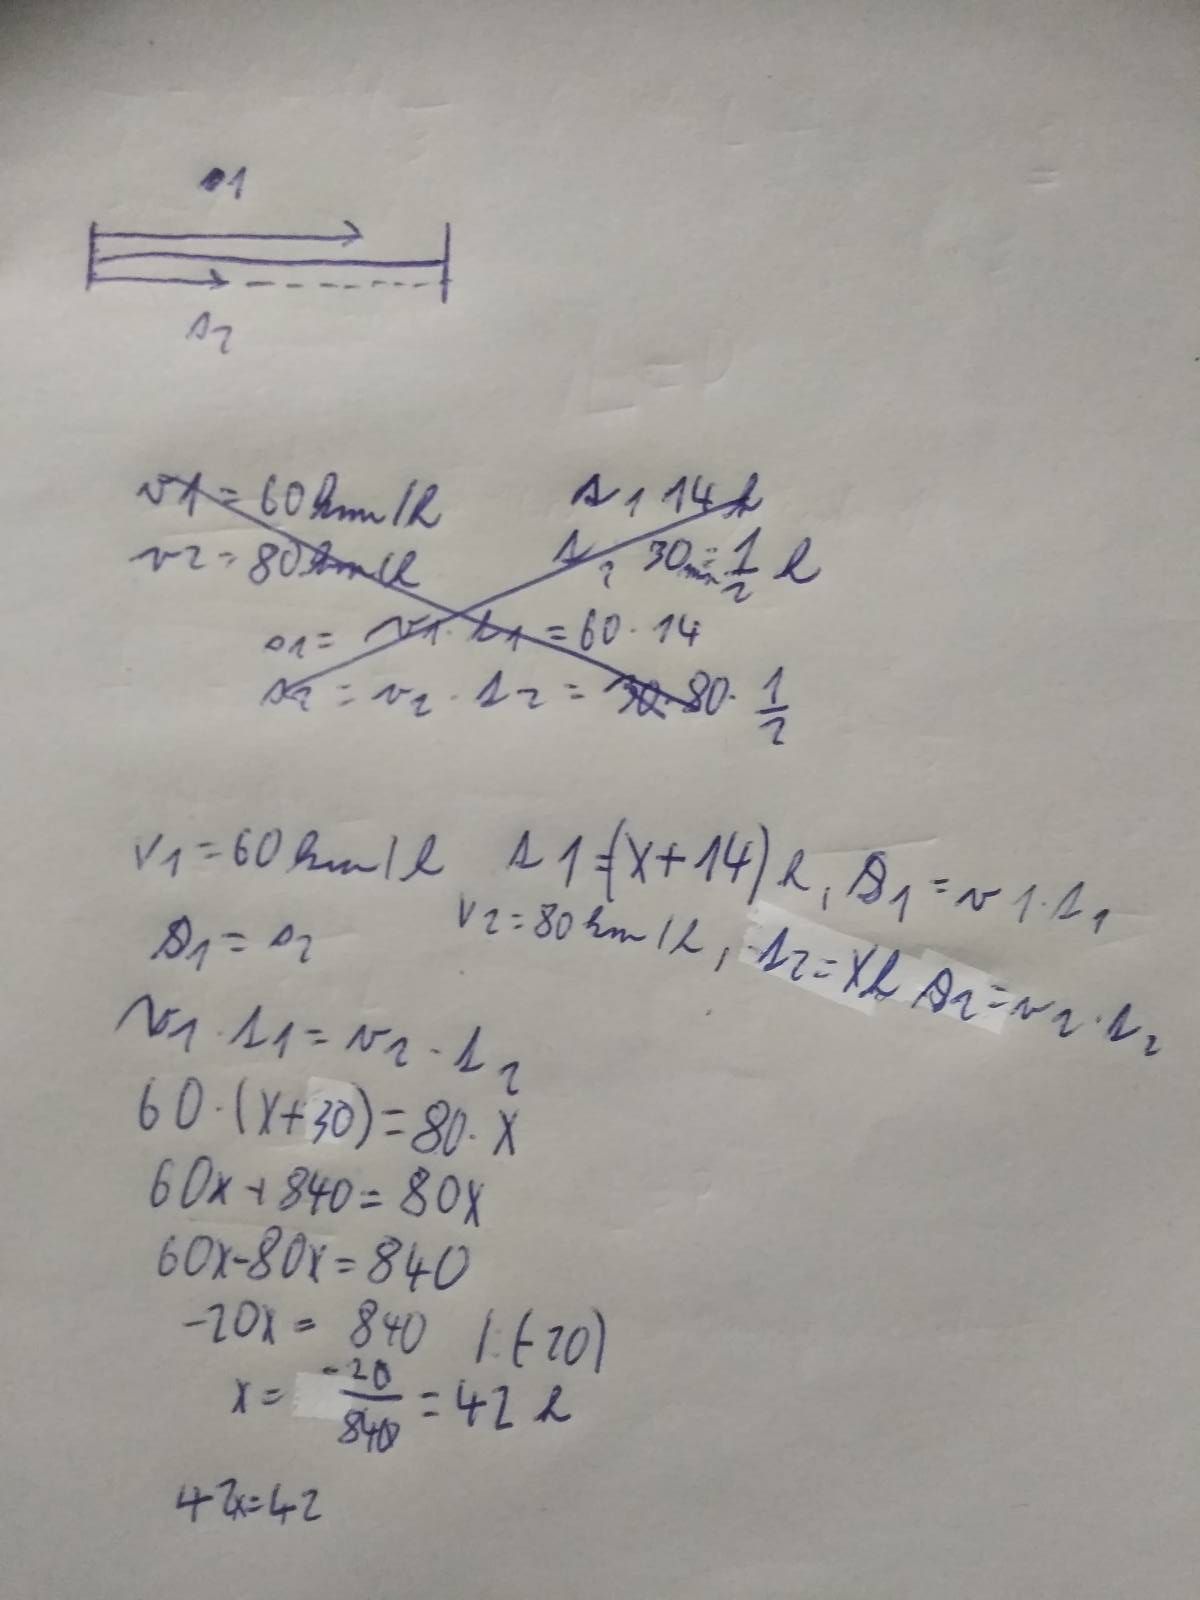 s1
s2
v1 = 60 km/h
t1 14 h
v2 = 80 km/h
t2 30 min = 1/2 h
s1 = v1 · t1 = 60 · 14
s2 = v2 · t2 = 80 · 1/2
v1 = 60 km/h t1 = (x + 14) h, s1 = v1 · t1
s1 = s2 v2 = 80 km/h, t2 = x h s2 = v2 · t2
v1 · t1 = v2 · t2
60 · (x + 30) = 80 · x
60x + 840 = 80x
60x - 80x = 840
-20x = 840 /: (-20)
x = -20/840 = 42 h
42x = 42